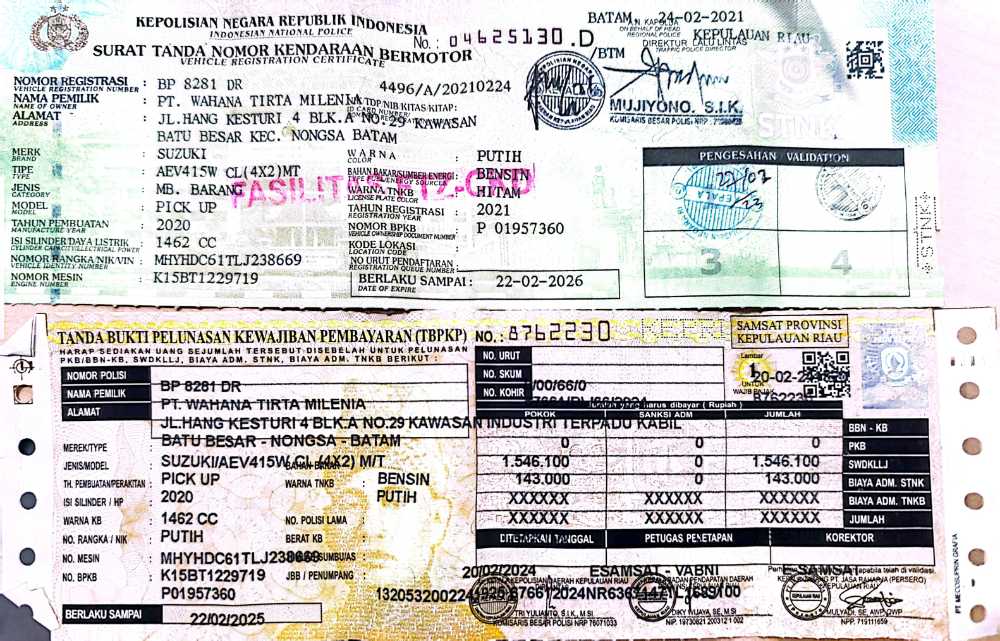 KEPOLISIAN NEGARA REPUBLIK INDONESIA
INDONESIAN NATIONAL POLICE
SURAT TANDA NOMOR KENDARAAN BERMOTOR
VEHICLE REGISTRATION CERTIFICATE
No.: 04625130.D
BATAM, 24-02-2021
A.N. KAPOLDA KEPULAUAN RIAU
ON BEHALF OF HEAD REGIONAL POLICE
DIREKTUR LALU LINTAS
TRAFFIC POLICE DIRECTOR
/BTM
MUJIYONO, S.I.K.
KOMISARIS BESAR POLISI NRP
NOMOR REGISTRASI : BP 8281 DR 4496/A/20210224
VEHICLE REGISTRATION NUMBER
NAMA PEMILIK : PT. WAHANA TIRTA MILENIA
NAME OF OWNER
TDP/NIB/KITAS/KITAP:
ALAMAT : JL.HANG KESTURI 4 BLK.A NO.29 KAWASAN
ADDRESS
BATU BESAR KEC. NONGSA BATAM
MERK : SUZUKI
BRAND
TIPE : AEV415W CL(4X2)MT
TYPE
JENIS : MB. BARANG
CATEGORY
MODEL : PICK UP
MODEL
TAHUN PEMBUATAN : 2020
MANUFACTURE YEAR
ISI SILINDER/DAYA LISTRIK : 1462 CC
CYLINDER CAPACITY/ELECTRICAL POWER
NOMOR RANGKA/NIK/VIN : MHYHDC61TLJ238669
VEHICLE IDENTITY NUMBER
NOMOR MESIN : K15BT1229719
ENGINE NUMBER
WARNA : PUTIH
COLOR
BAHAN BAKAR/SUMBER ENERGI : BENSIN
WARNA TNKB : HITAM
LICENSE PLATE COLOR
TAHUN REGISTRASI : 2021
REGISTRATION YEAR
NOMOR BPKB : P 01957360
VEHICLE OWNERSHIP DOCUMENT NUMBER
KODE LOKASI :
LOCATION CODE
NO URUT PENDAFTARAN :
REGISTRATION QUEUE NUMBER
BERLAKU SAMPAI : 22-02-2026
DATE OF EXPIRE
PENGESAHAN / VALIDATION
3
4
STNK
TANDA BUKTI PELUNASAN KEWAJIBAN PEMBAYARAN (TBPKP) NO.: 8762230
HARAP SEDIAKAN UANG SEJUMLAH TERSEBUT DISEBELAH UNTUK PELUNASAN
PKB/BBN-KB, SWDKLLJ, BIAYA ADM. STNK, BIAYA ADM. TNKB BERIKUT :
SAMSAT PROVINSI
KEPULAUAN RIAU
Lembar
1
UNTUK
WAJIB PAJAK
NO. URUT
NO. SKUM
NO. KOHIR
/00/66/0
NOMOR POLISI BP 8281 DR
NAMA PEMILIK PT. WAHANA TIRTA MILENIA
ALAMAT JL.HANG KESTURI 4 BLK.A NO.29 KAWASAN INDUSTRI TERPADU KABIL
BATU BESAR - NONGSA - BATAM
MEREK/TYPE : SUZUKI/AEV415W CL (4X2) M/T
JENIS/MODEL : PICK UP
TH. PEMBUATAN/PERAKITAN : 2020
ISI SILINDER / HP : 1462 CC
WARNA KB : PUTIH
NO. RANGKA / NIK : MHYHDC61TLJ238669
NO. MESIN : K15BT1229719
NO. BPKB : P01957360
BERLAKU SAMPAI : 22/02/2025
BAHAN BAKAR
BENSIN
WARNA TNKB : PUTIH
NO. POLISI LAMA :
BERAT KB :
JBB / PENUMPANG :
harus dibayar ( Rupiah )
POKOK SANKSI ADM JUMLAH
0 0 0 BBN - KB
1.546.100 0 1.546.100 PKB
143.000 0 143.000 SWDKLLJ
XXXXXX XXXXXX XXXXXX BIAYA ADM. STNK
XXXXXX XXXXXX XXXXXX BIAYA ADM. TNKB
JUMLAH
DITETAPKAN TANGGAL PETUGAS PENETAPAN KOREKTOR
20/02/2024 ESAMSAT - VABNI E-SAMSAT
TRI YULIANTO, S.I.K., M.SI
KOMISARIS BESAR POLISI NRP 76071033
DIKY WIJAYA, SE, M.SI
NIP. 19730821 200312 1 002
MULYADI, SE, AWP, QWP
NPP. 719111659